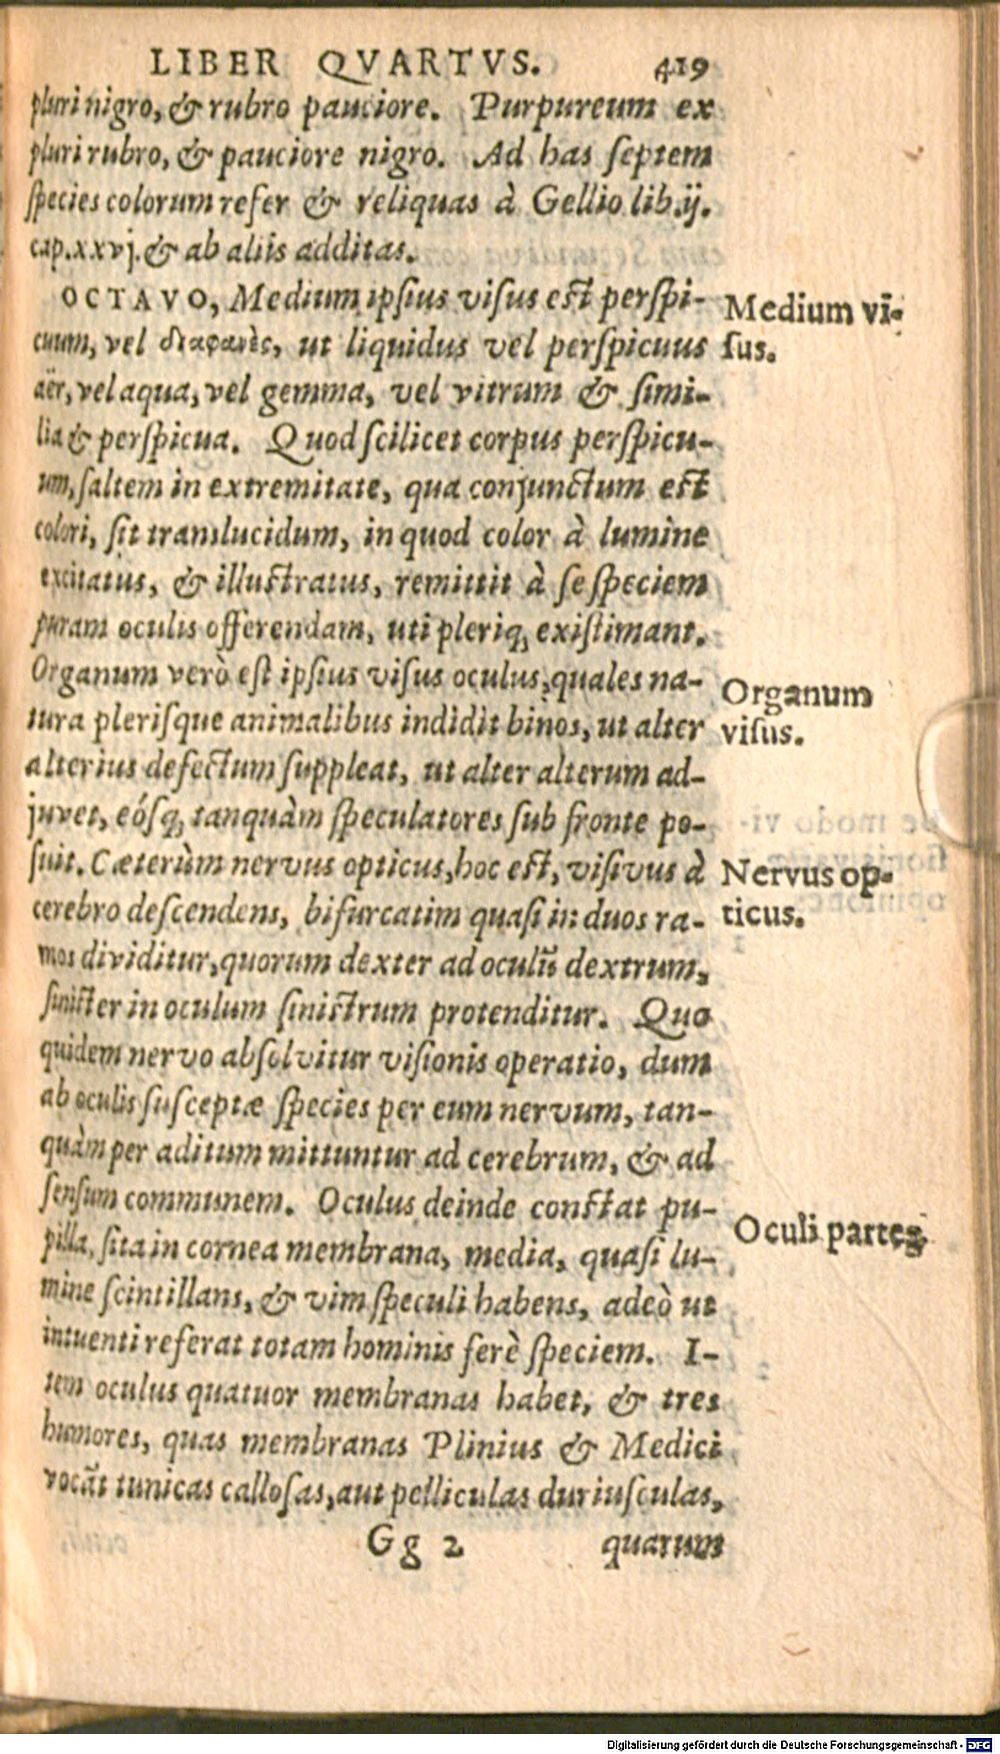 LIBER QVARTVS. 419
pluri nigro, & rubro pauciore. Purpureum ex
pluri rubro, & pauciore nigro. Ad has septem
species colorum refer & reliquas à Gellio lib.ij.
cap.xxvj. & ab aliis additas.
OCTAVO, Medium ipsius visus est perspi-
cuum, vel διαφανὲς, ut liquidus vel perspicuus
aër, vel aqua, vel gemma, vel vitrum & simi-
lia & perspicua. Quod scilicet corpus perspicu-
um, saltem in extremitate, qua conjunctum est
colori, sit translucidum, in quod color à lumine
excitatus, & illustratus, remittit à se speciem
puram oculis offerendam, uti pleriq, existimant.
Organum verò est ipsius visus oculus, quales na-
tura plerisque animalibus indidit binos, ut alter
alterius defectum suppleat, ut alter alterum ad-
juvet, eósq, tanquàm speculatores sub fronte po-
suit. Cæterùm nervus opticus, hoc est, visivus à
cerebro descendens, bifurcatim quasi in duos ra-
mos dividitur, quorum dexter ad oculũ dextrum,
sinister in oculum sinistrum protenditur. Quo
quidem nervo absolvitur visionis operatio, dum
ab oculis susceptæ species per eum nervum, tan-
quàm per aditum mittuntur ad cerebrum, & ad
sensum communem. Oculus deinde constat pu-
pilla, sita in cornea membrana, media, quasi lu-
mine scintillans, & vim speculi habens, adeò ut
intuenti referat totam hominis ferè speciem. I-
tem oculus quatuor membranas habet, & tres
humores, quas membranas Plinius & Medici
vocãt tunicas callosas, aut pelliculas duriusculas,
Gg 2 quarum
Medium vi-
sus.
Organum
visus.
Nervus op-
ticus.
Oculi partes
Digitalisierung gefördert durch die Deutsche Forschungsgemeinschaft - DFG